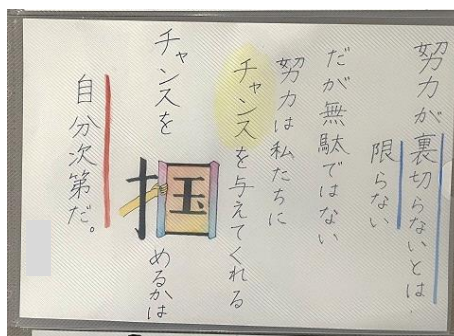 努力が裏切らないとは、
限らない
だが無駄ではない
努力は私たちに
チャンスを与えてくれる
チャンスを
掴めるかは
自分次第だ。